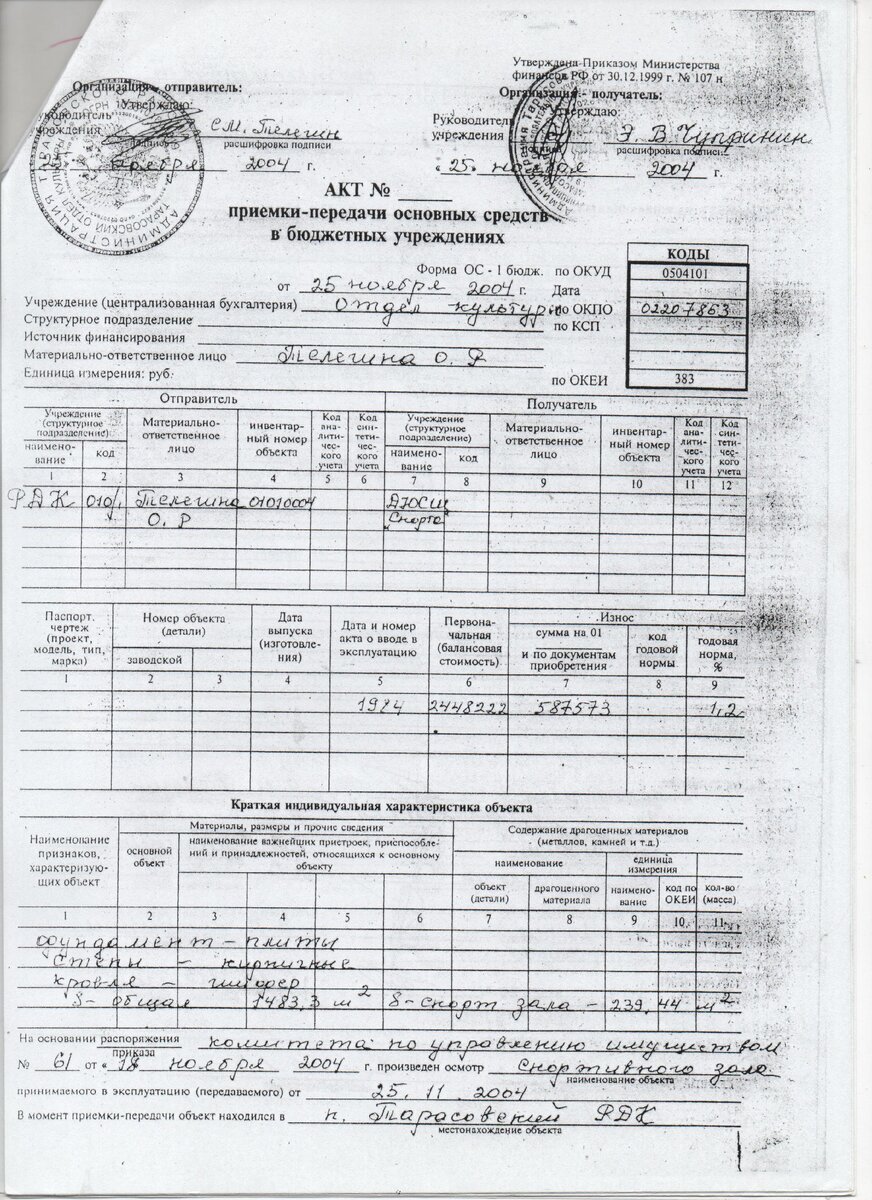 Утверждена Приказом Министерства
финансов РФ от 30.12.1999 г. № 107 н
Организация - отправитель:
Организация - получатель:
Утверждаю:
Утверждаю:
Руководитель
учреждения С.М. Телегин
Руководитель
учреждения Э. В. Чупринин
подпись расшифровка подписи
подпись расшифровка подписи
25 ноября 2004 г.
« 25 » ноября 2004 г.
АКТ №
приемки-передачи основных средств
в бюджетных учреждениях
КОДЫ
Форма ОС - 1 бюдж. по ОКУД 0504101
от 25 ноября 2004 г. Дата
Учреждение (централизованная бухгалтерия) Отдел культуры по ОКПО 02207863
Структурное подразделение по КСП
Источник финансирования
Материально-ответственное лицо Телегина О. Р
Единица измерения: руб. по ОКЕИ 383
Отправитель Получатель
Учреждение (структурное подразделение) Материально-ответственное лицо инвентар-ный номер объекта Код ана-лити-чес-кого учета Код син-тети-чес-кого учета Учреждение (структурное подразделение) Материально-ответственное лицо инвентар-ный номер объекта Код ана-лити-чес-кого учета Код син-тети-чес-кого учета
наимено-вание код наимено-вание код
1 2 3 4 5 6 7 8 9 10 11 12
РДК 010/1 Телегина 01010004 ДЮСШ
О. Р Спорта
Паспорт. чертеж (проект, модель, тип, марка) Номер объекта (детали) Дата выпуска (изготовле-ния) Дата и номер акта о вводе в эксплуатацию Первона-чальная (балансовая стоимость) Износ
заводской сумма на 01 и по документам приобретения код годовой нормы годовая норма, %
1 2 3 4 5 6 7 8 9
1984 2448222 587573 1,2
Краткая индивидуальная характеристика объекта
Наименование признаков, характеризую-щих объект Материалы, размеры и прочие сведения Содержание драгоценных материалов (металлов, камней и т.д.)
основной объект наименование важнейших пристроек, приспособле-ний и принадлежностей, относящихся к основному объекту наименование единица измерения
объект (детали) драгоценного материала наимено-вание код по ОКЕИ кол-во (масса)
1 2 3 4 5 6 7 8 9 10 11
фундамент - плиты
Стены - кирпичные
Кровля - шифер
S- общая 1483,3 м2 S-спорт зала - 239,44 м2
На основании распоряжения комитета по управлению имуществом
приказа
№ 61 от « 18 ноября 2004 г. произведен осмотр Спортивного зала
наименование объекта
принимаемого в эксплуатацию (передаваемого) от 25. 11. 2004
В момент приемки-передачи объект находился в п. Тарасовский РДК
местонахождение объекта